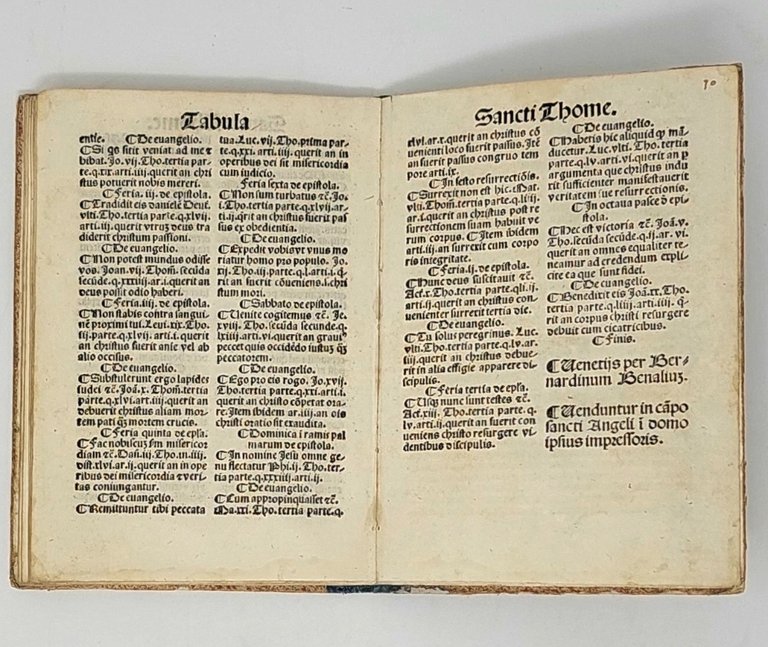 Tabula
entie. ¶De euangelio.
¶Si qs sitit veniat ad me ⁊
bibat. Jo. vij. Tho. tertia par-
te. q. xix. arti. iiij. querit an chri
stus potuerit nobis mereri.
¶Feria. iij. de epistola.
¶Tradidit eis danielē Deu.
vlti. Tho. tertia parte. q. xlvij.
arti. iij. querit vtrum deus tra
diderit christum passioni.
¶De euangelio.
¶Non potest mundus odisse
vos. Joan. vij. Thom. secūda
secūde. q. xxxiiij. ar. i. querit an
deus possit odio haberi.
¶Feria. iiij. de epistola.
¶Non stabis contra sangui
nē proximi tui. Leui. xix. Tho.
iij. parte. q. xlvij. arti. i. querit
an christus fuerit ab se vel ab
alio occisus.
¶De euangelio.
¶Substulerunt ergo lapides
iudei ⁊c̄. Joā. x. Thom. tertia
parte. q. xlvi. arti. iij. querit an
debuerit christus aliam mor
tem pati q̄ mortem crucis.
¶Feria quinta de epl'a.
¶Fac nobiscum sm misericor
diam ⁊c̄. Dañ. iij. Tho. in. iiij.
dist. xlvi. ar. ij. querit an in ope
ribus dei misericordia ⁊ veri
tas coniungantur.
¶De euangelio.
¶Remittuntur tibi peccata
tua. Luc. vij. Tho. prima par-
te. q. xxi. arti. iiij. querit an in
operibus dei sit misericordia
cum iudicio.
Feria sexta de epistola.
¶Non sum turbatus ⁊c̄. Jo.
i. Tho. tertia parte. q. xlvij. ar-
ti. ij. q̄rit an christus fuerit pas
sus ex obedientia.
¶De euangelio.
¶Expedit vobis vt vnus mo
riatur homo pro populo. Jo.
xij. Tho. iij. parte. q. l. arti. i. q̄
rit an fuerit cōueniens. i. chri
stum mori.
¶Sabbato de epistola.
¶Uenite cogitemus ⁊c̄. Je.
xviij. Tho. secūda secunde. q.
lxiiij. arti. vi. querit an grauiꝰ
peccet quis occidēdo iustum q̄
peccatorem.
¶De euangelio.
¶Ego pro eis rogo. Jo. xvij.
Tho. tertia parte. q. xxi. arti. i.
querit an christo cōpetat ora-
re. Item ibidem ar. iiij. an ois
christi oratio sit exaudita.
¶Dominica i ramis pal
marum de epistola.
¶In nomine Jesu omne ge-
nu flectatur Phi. ij. Tho. ter-
tia parte. q. xxxiiij. arti. ij.
¶De euangelio.
¶Cum appropinquasset ⁊c̄.
Ma. xxi. Tho. tertia parte. q.
Sancti Thome.
xlvi. ar. x. querit an christus cō
uenienti loco fuerit passus. Itē
an fuerit passus congruo tem
pore arti. ix.
¶In festo resurrectiōis.
¶Surrexit non est hic. Mat.
vlti. Thom. tertia parte. q. liiij
ar. i. querit an christus post re
surrectionem suam habuit ve
rum corpus. ¶Item ibidem
arti. iij. an surrexit cum corpo
ris integritate.
¶Feria. ij. de epistola.
¶Hunc deus suscitauit ⁊c̄.
Act. x. Tho. tertia parte. q. liij. q.
arti. ij. querit an christus con-
uenienter surrexit tertia die.
¶De euangelio.
¶Tu solus peregrinus. Luc.
vlti. Tho. tertia parte. q. lv. ar.
iiij. querit an christus debue-
rit in alia effigie apparere di-
scipulis.
¶Feria tertia de epl'a.
¶Usq̄ nunc sunt testes ⁊c̄.
Act. xiij. Tho. tertia parte. q.
lv. arti. ij. querit an fuerit con
ueniens christo resurgere vi-
dentibus discipulis.
¶De euangelio.
¶Haberis hic aliquid qd mā-
ducetur. Luc. vlti. Tho. tertia
parte. q. lv. arti. vi. querit an p
argumenta que christus indu
xit sufficienter manifestauerit
veritatem sue resurrectionis.
¶In octaua pasce d' epi-
stola.
¶Hec est victoria ⁊c̄. Joā. v.
Tho. secūda secūde. q. ij. ar. vi.
querit an omnes equaliter te-
neamur ad credendum expli-
cite ea que sunt fidei.
¶De euangelio.
¶Benedixit eis Joā. xx. Tho.
tertia parte. q. liiij. arti. iiij. q̄-
rit an corpus christi resurgere
debuit cum cicatricibus.
¶Finis.
¶Uenetijs per Ber-
nardinum Benalium.
¶Uenduntur in cāpo
sancti Angeli i domo
ipsius impressoris.